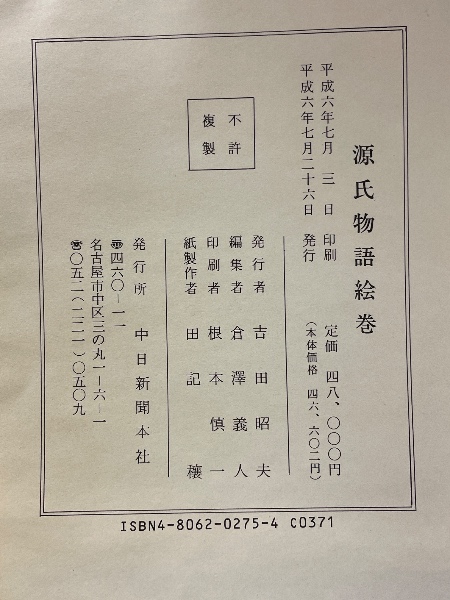 源氏物語絵巻
平成六年七月 三 日 印刷 定価 四八、〇〇〇円
平成六年七月二十六日 発行 (本体価格 四六、六〇二円)
不許
複製
発行者 吉田昭夫
編集者 倉澤義人
印刷者 根本慎一
紙製作者 田記穣
発行所 中日新聞本社
〠四六〇—一一
名古屋市中区三の丸一ー六ー一
☎〇五二(二二一)〇五〇九
ISBN4-8062-0275-4 C0371